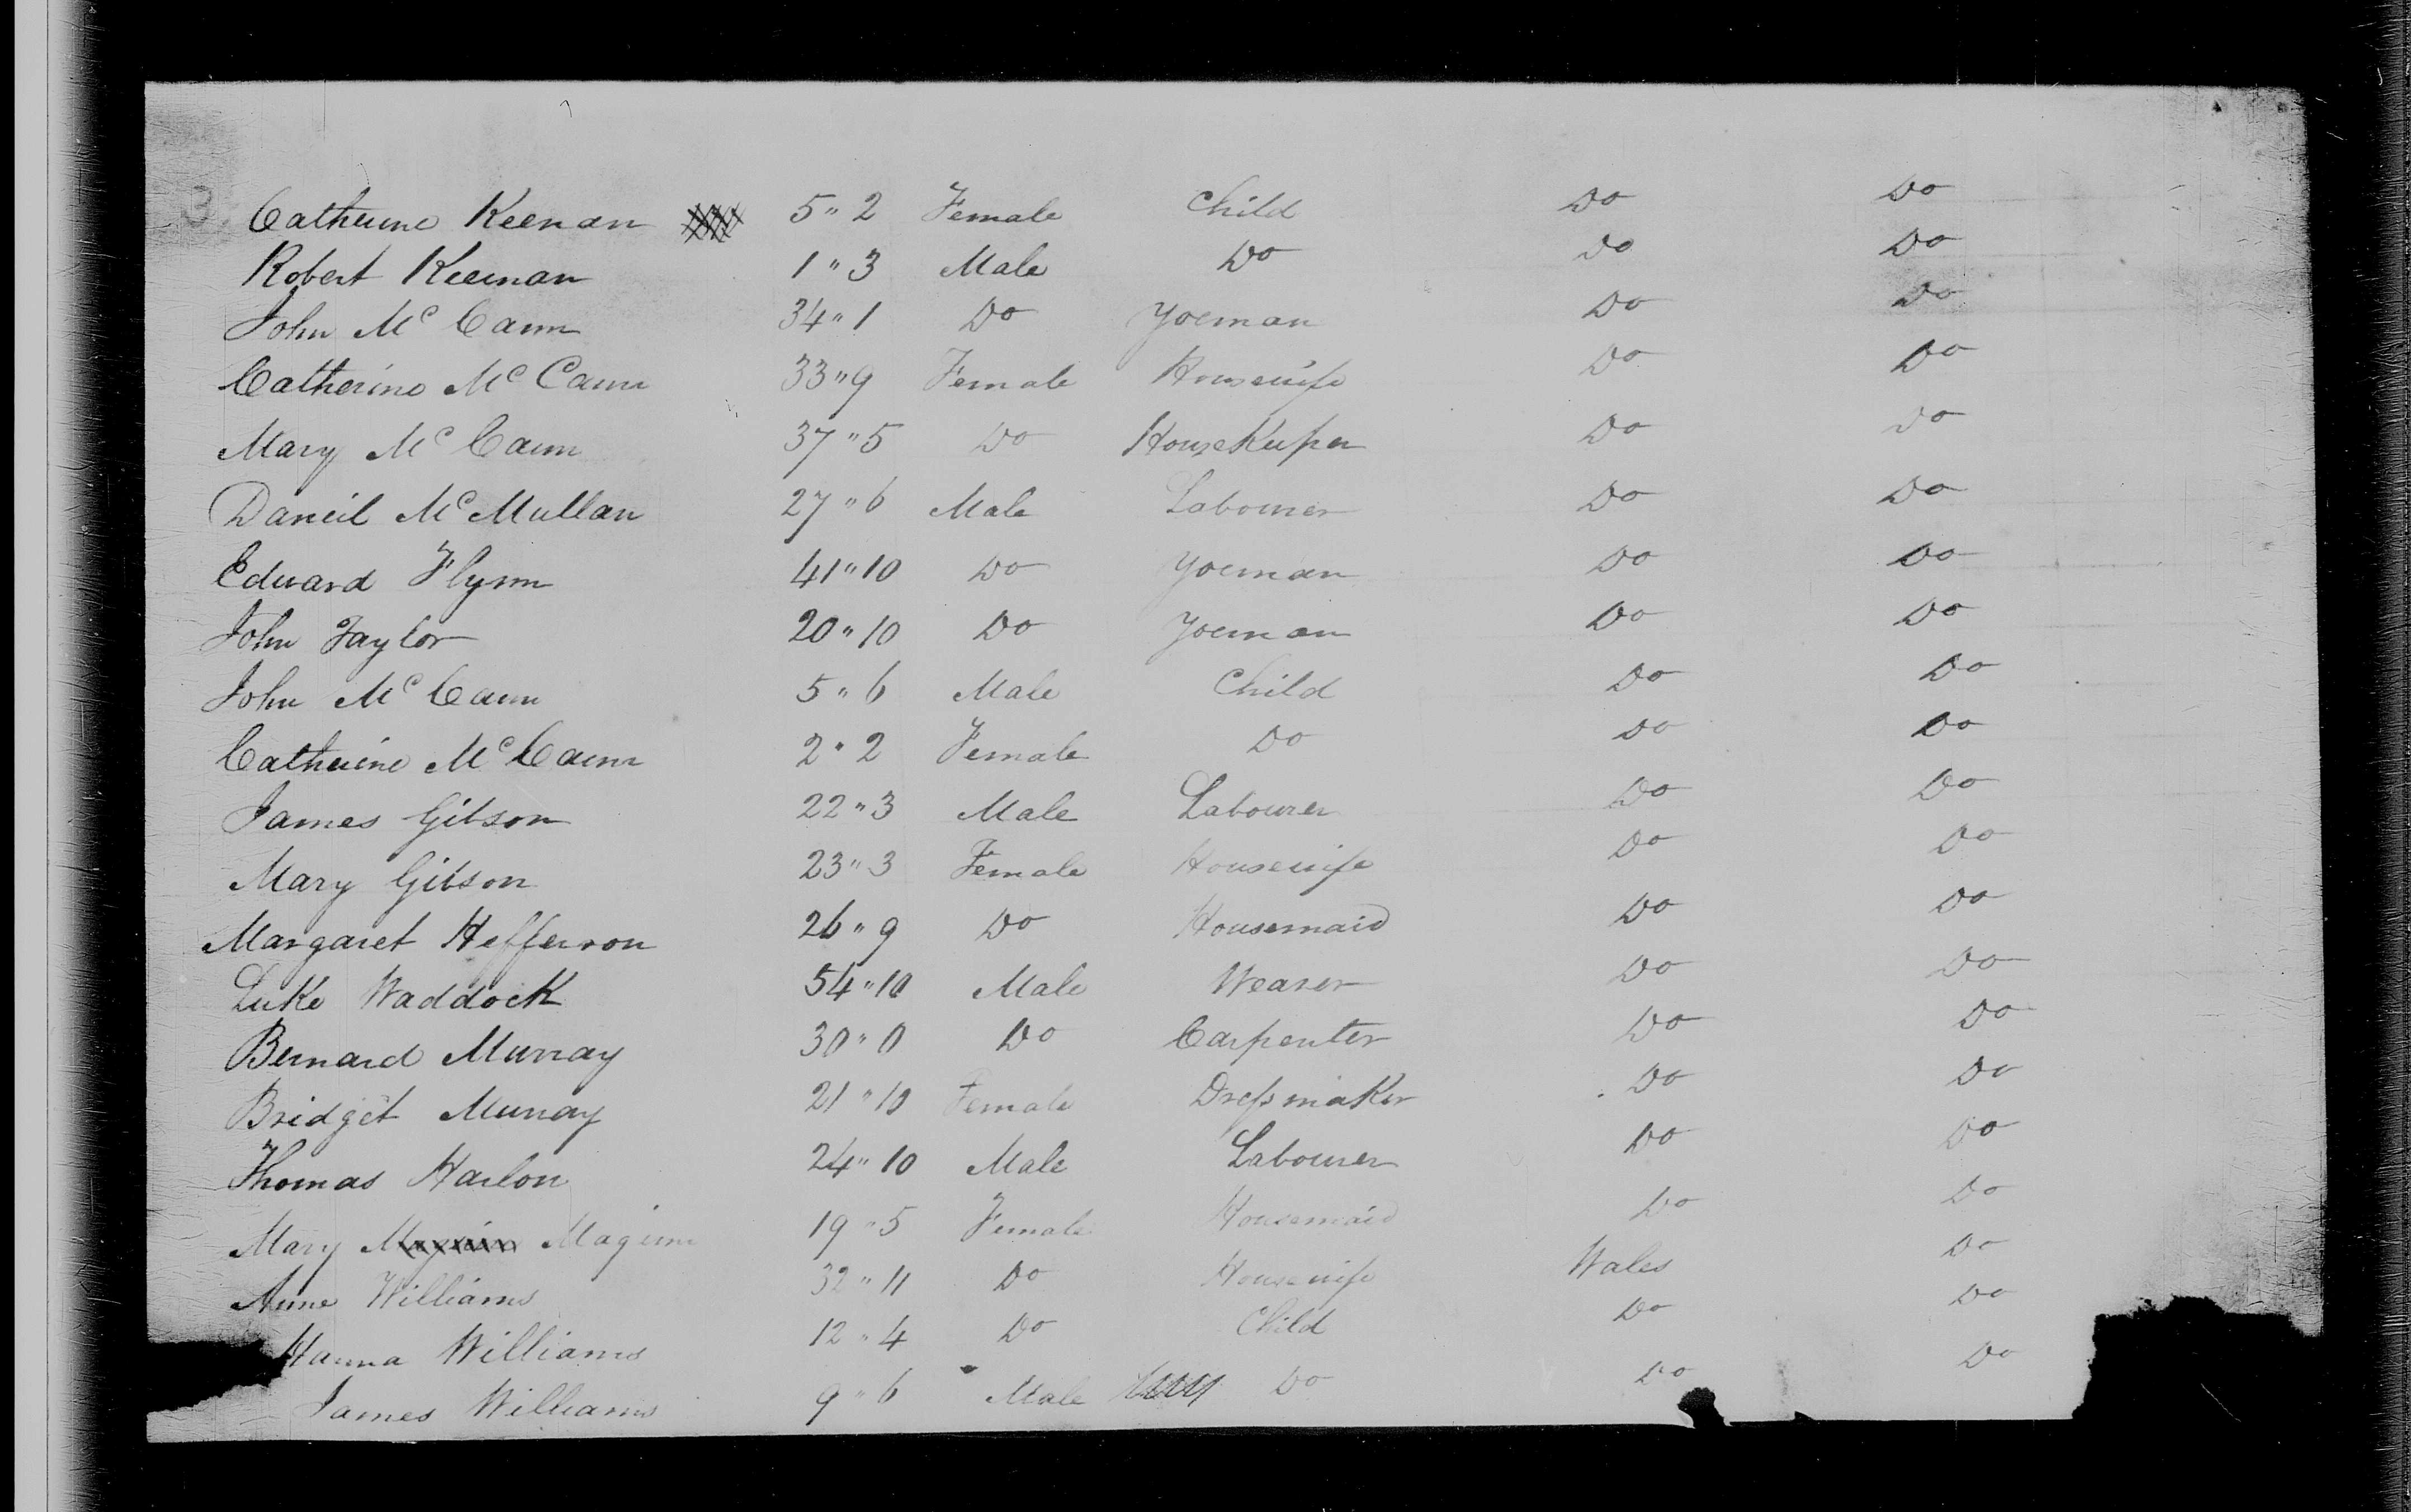 3
Catherine Keenan 5 " 2 Female Child Do Do
Robert Keenan 1 " 3 Male Do Do Do
John Mc Cann 34 " 1 Do Yoeman Do Do
Catherine Mc Cann 33 " 9 Female Housewife Do Do
Mary Mc Cann 37 " 5 Do HouseKeeper Do Do
Daneil Mc Mullan 27 " 6 Male Labourer Do Do
Edward Flynn 41 " 10 Do Yoeman Do Do
John Taylor 20 " 10 Do Yoeman Do Do
John Mc Cann 5 " 6 Male Child Do Do
Catherine Mc Cann 2 " 2 Female Do Do Do
James Gibson 22 " 3 Male Labourer Do Do
Mary Gibson 23 " 3 Female Housewife Do Do
Margaret Hefferron 26 " 9 Do Housemaid Do Do
Luke Waddock 54 " 10 Male Weaver Do Do
Bernard Murray 30 " 0 Do Carpenter Do Do
Bridget Murray 21 " 10 Female Dressmaker Do Do
Thomas Harlon 24 " 10 Male Labourer Do Do
Mary Maginn 19 " 5 Female Housemaid Do Do
Anne Williams 32 " 11 Do Housewife Wales Do
Hanna Williams 12 " 4 Do Child Do Do
James Williams 9 " 6 Male Do Do Do